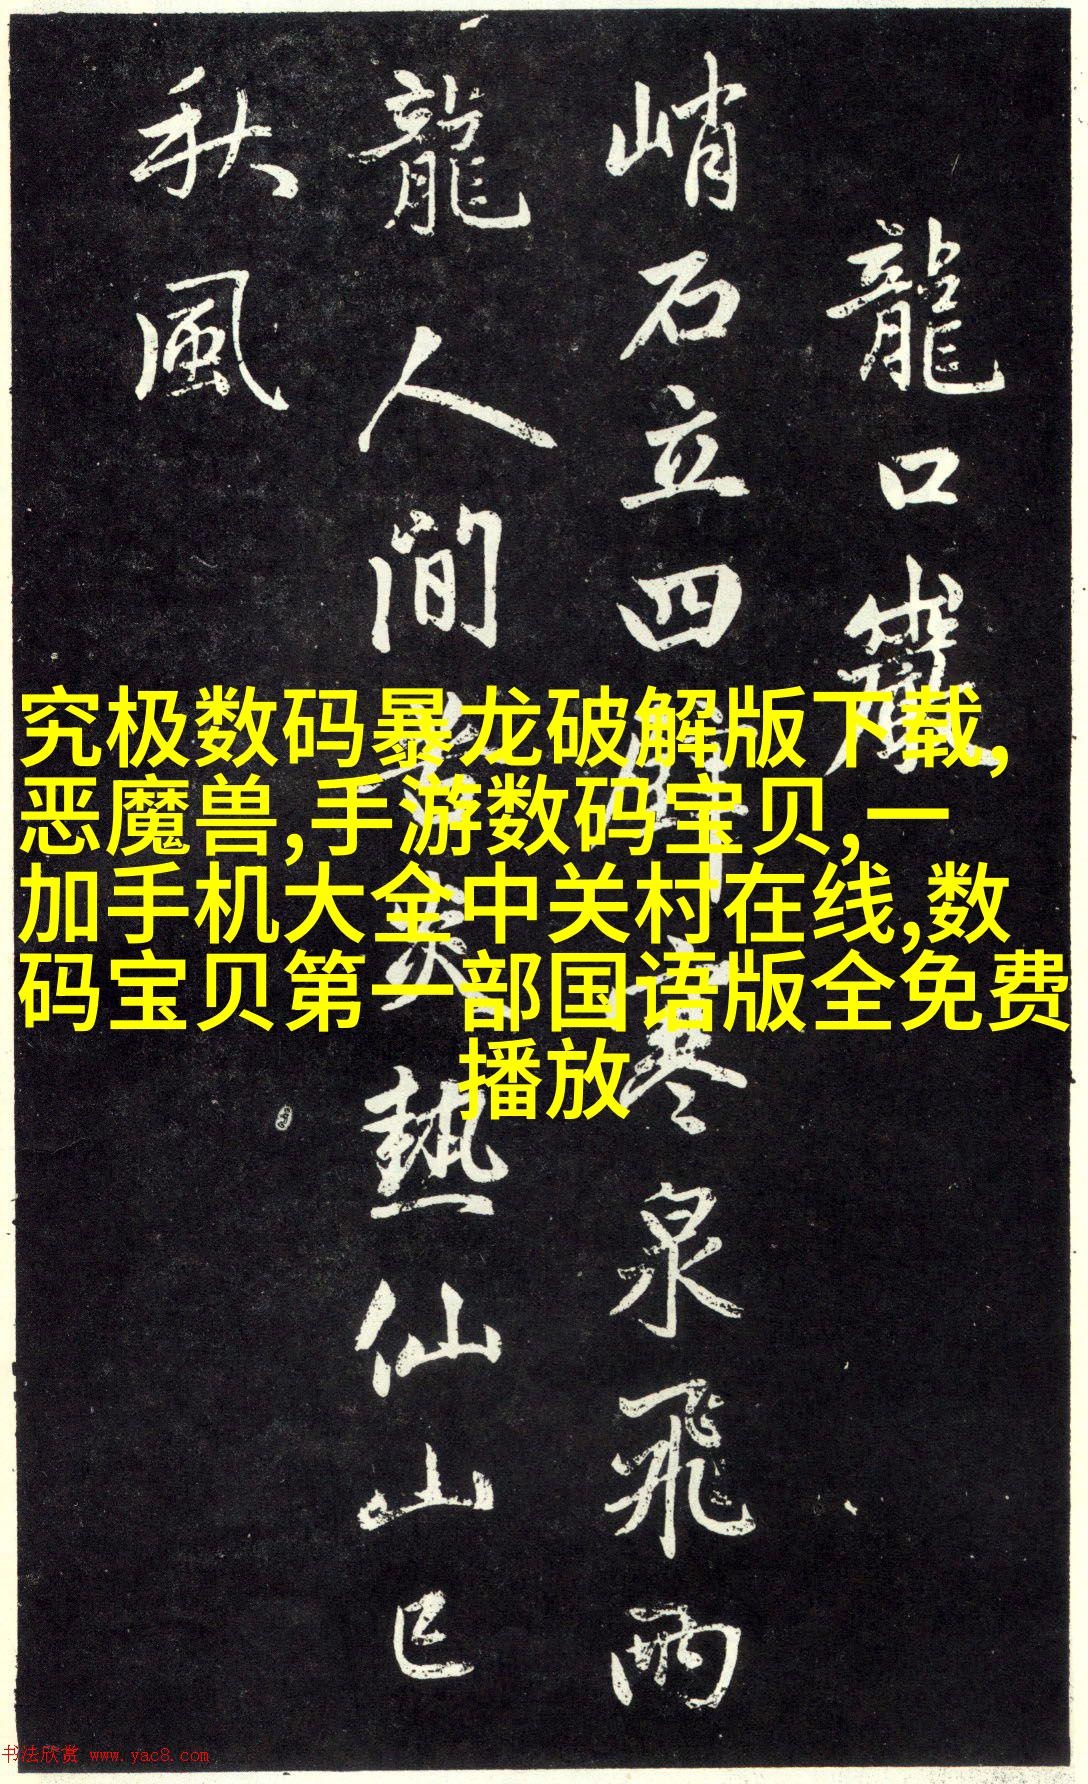 龍口
峭石立四寒泉飛兩
龍人間炎熱仙山已
秋風
究极数码暴龙破解版下载,
恶魔兽,手游数码宝贝,一
加手机大全中关村在线,数
码宝贝第一部国语版全免费
播放
书法欣赏 www.yac8.com